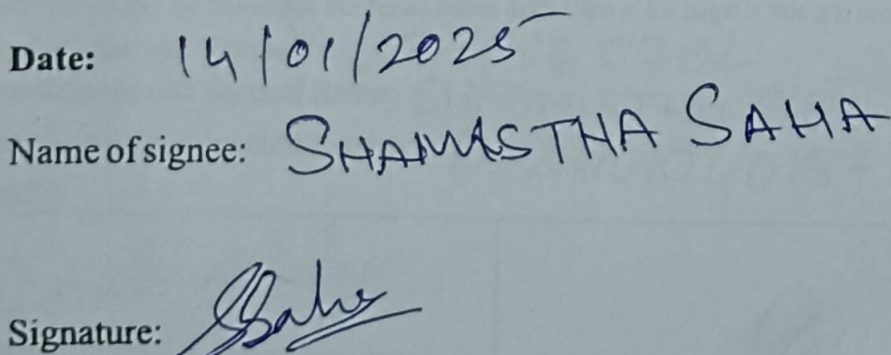 Date: 14/01/2025
Name of signee: SHAMASTHA SAHA
Signature: SSaha